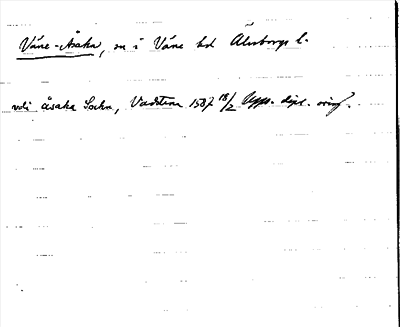 Väne-Åsaka, sn i Väne hd Älvsborgs l.
vdi åsaka Sockn, Vadstena 1587 18/2 Upps. dipl. orig.